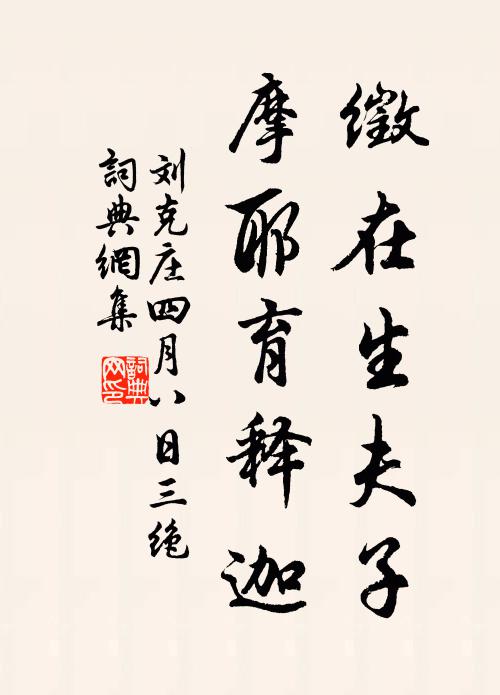 徵在生夫子
摩耶育释迦
刘克庄四月八日三绝
詞典網集
詞典
网印